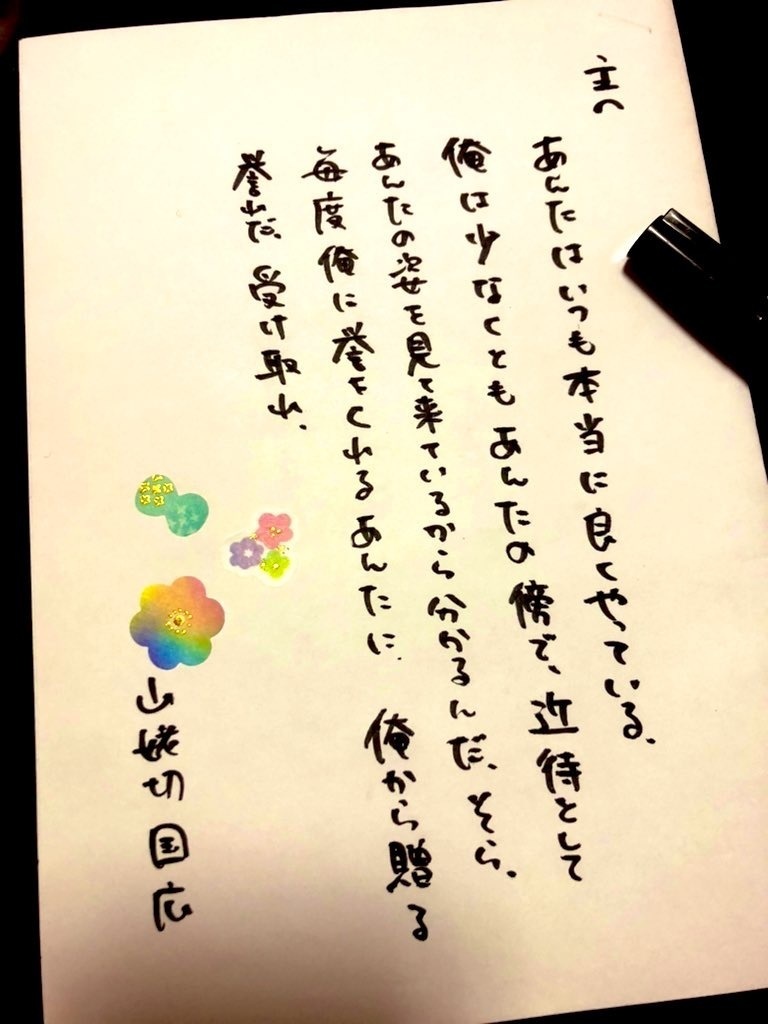 主へ
あんたはいつも本当に良くやっている、
俺は少なくともあんたの傍で、近待として
あんたの姿を見て来ているから分かるんだ、そら、
毎度俺に誉をくれるあんたに、俺から贈る
誉れだ、受け取れ、
山姥切国広